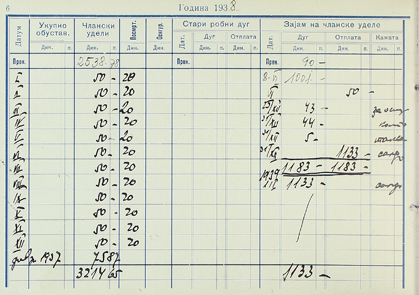 6
Година 1938.
Датум Укупно обустав. Члански удели Паспорт. Осигур. Дат. Стари робни дуг Дат. Зајам на чланске уделе
Дин. п. Дин. п. Дин. Дин. Дуг Отплата Дуг Отплата Камата
Дин. п. Дин. п. Дин. п. Дин. п. Дин. п.
Прен. 2538 78 Прен. Прен. 90 -
I 50 - 20 8-II 1001 -
II 50 - 20 50 -
III 50 - 20 43 -
IV 50 - 20 44 -
V 50 - 20 5 -
VI 50 - 20 1133 -
VII 50 - 20 1183 - 1183 -
VIII 50 - 20 1939 1133 -
IX 50 - 20
X 50 - 20
XI 50 - 20
XII 50 - 20
1937 75 87
3214 65 1133 -